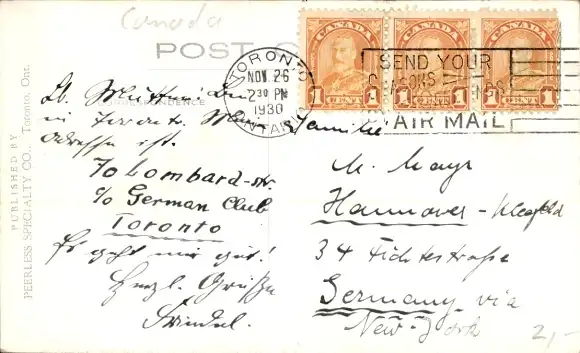 Canada
POST C
CORRESPONDENCE
PUBLISHED BY
PEERLESS SPECIALTY CO., Toronto, Ont.
CANADA
CANADA
CANADA
1 CENT 1
1 CENT 1
1 CENT 1
TORONTO
NOV 26
2 30 PM
1930
ONTARIO
SEND YOUR
AIR MAIL
Lb. Mutter! Bin
in Toronto. Meine
Adresse ist.
70 Lombard-str.
c/o German Club
Toronto
Es geht mir gut!
Herzl. Grüße
Familie
M. Mayr
Hannover - Kleefeld
34 Fichtestraße
Germany via
New-York
2,-